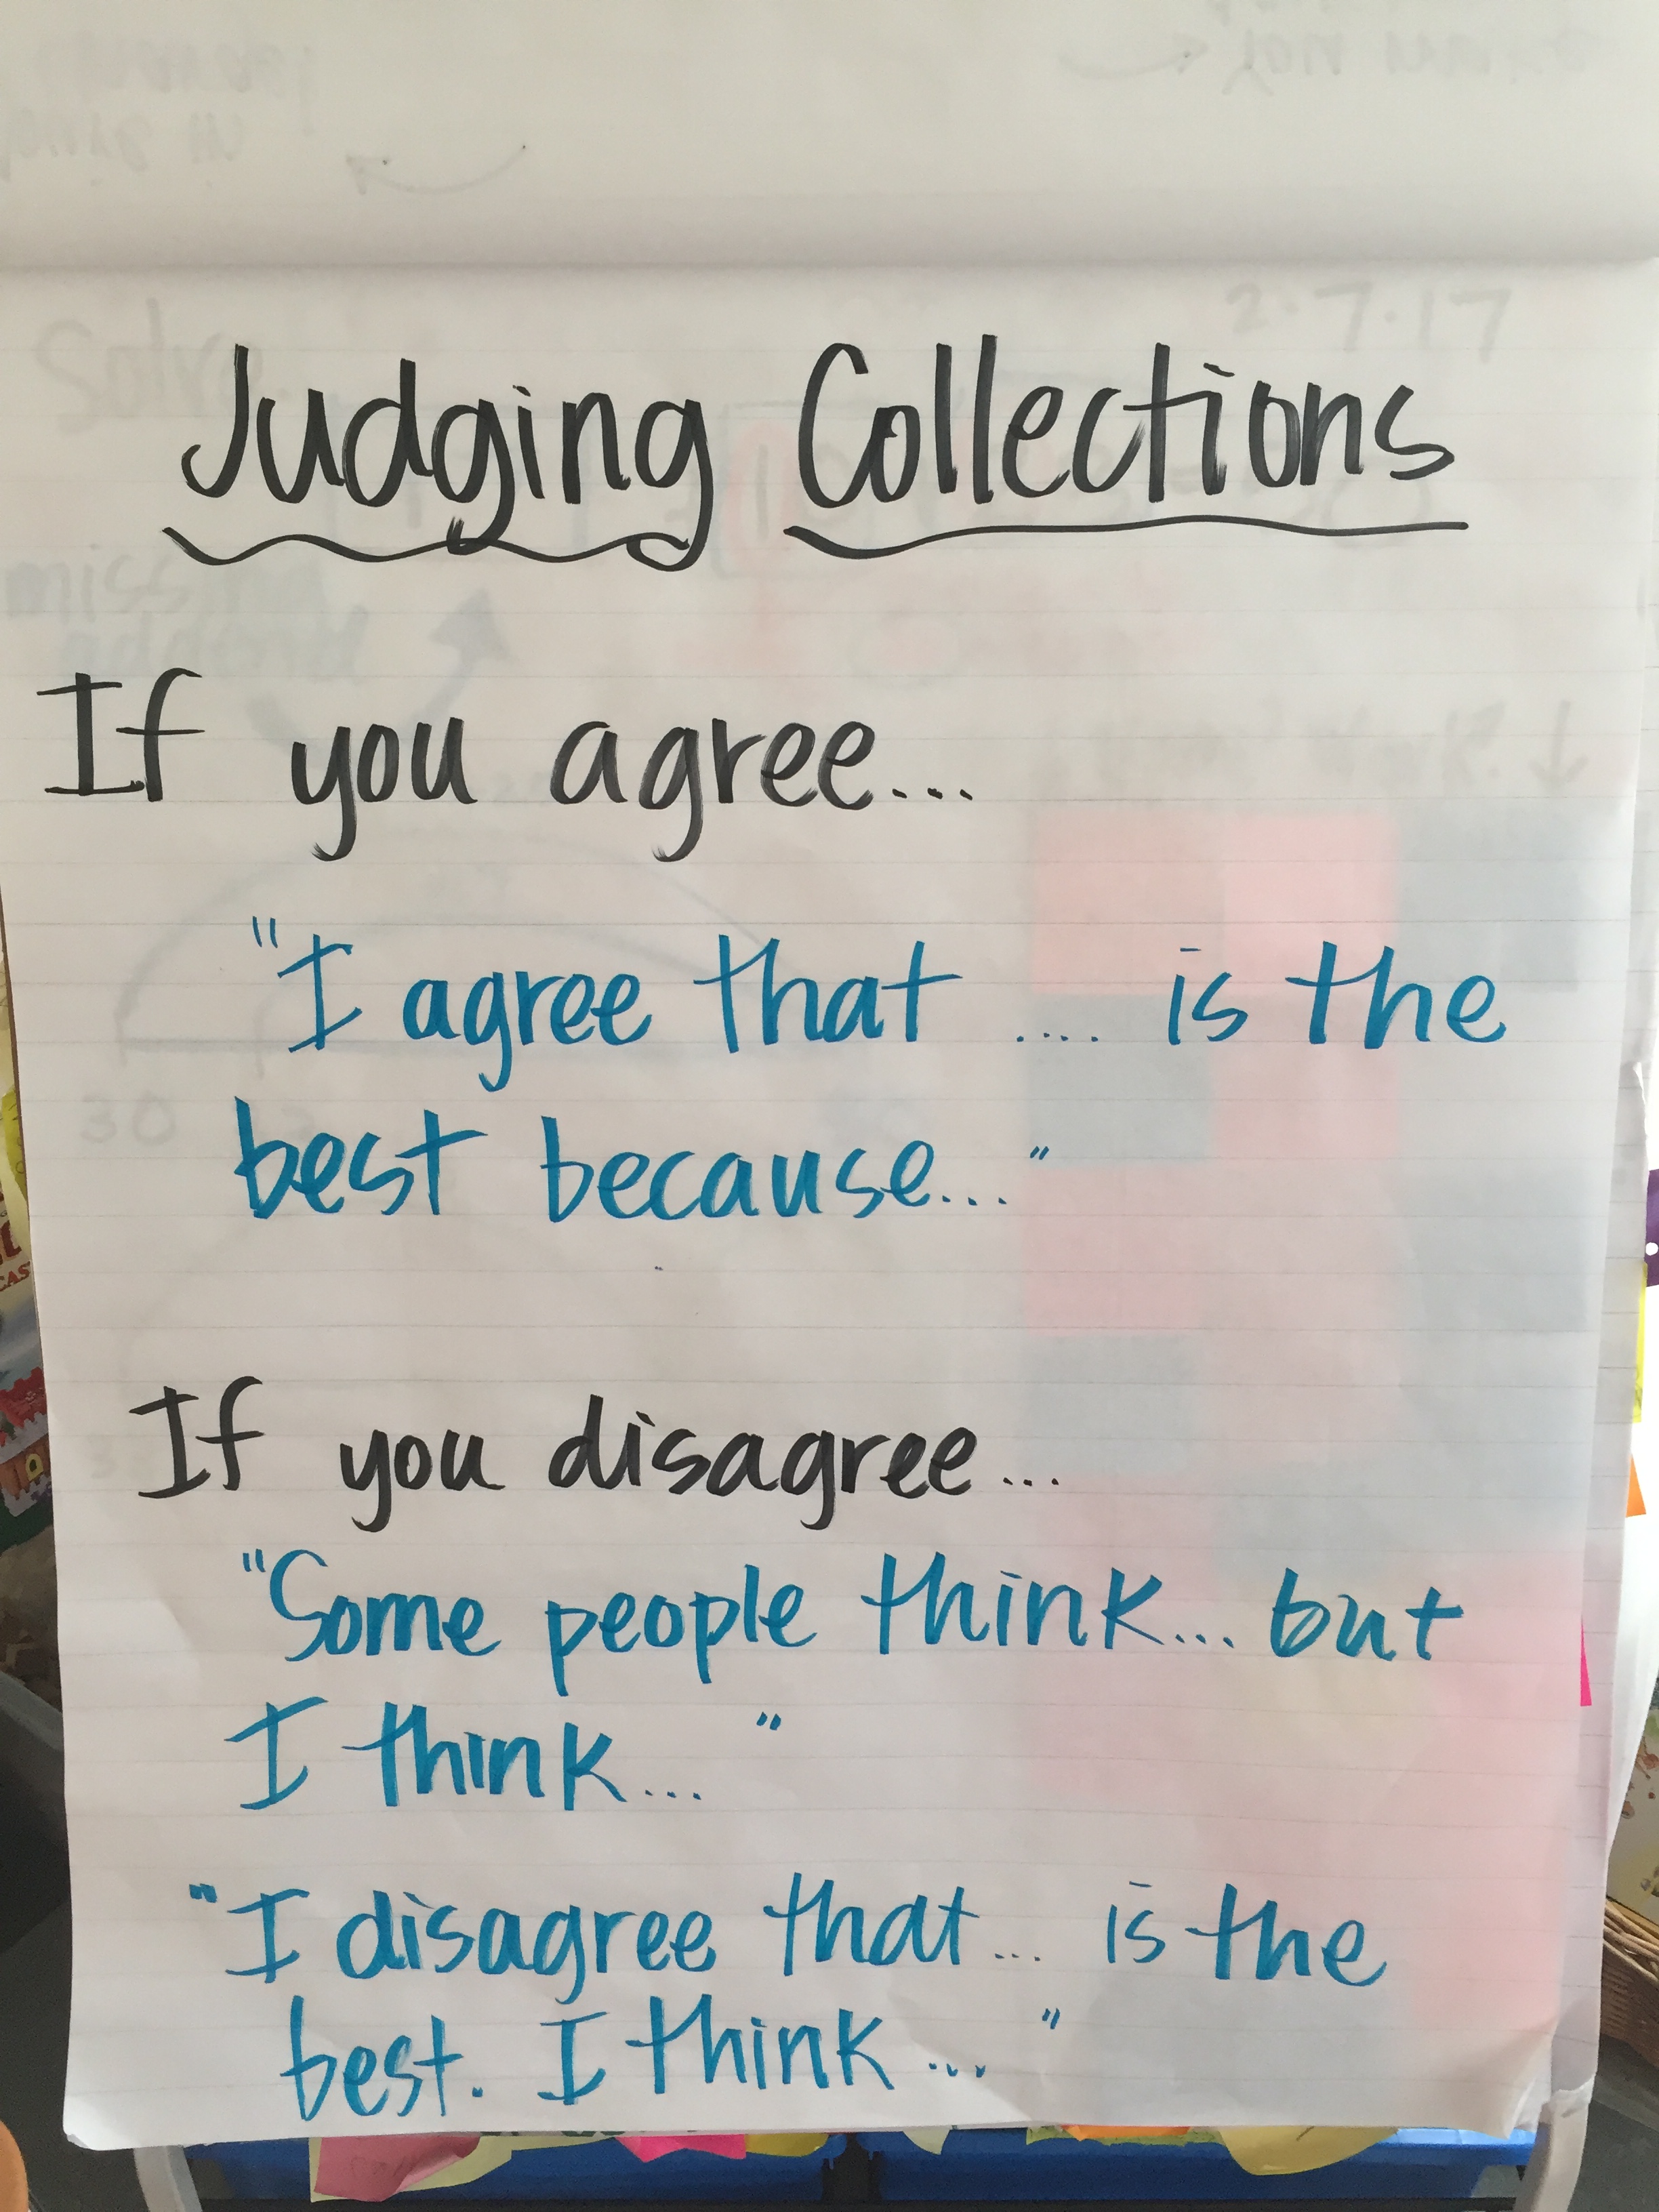 2.7.17
Judging Collections
If you agree...
"I agree that .... is the
best because..."
If you disagree...
"Some people think... but
I think... "
"I disagree that... is the
best. I think ... "